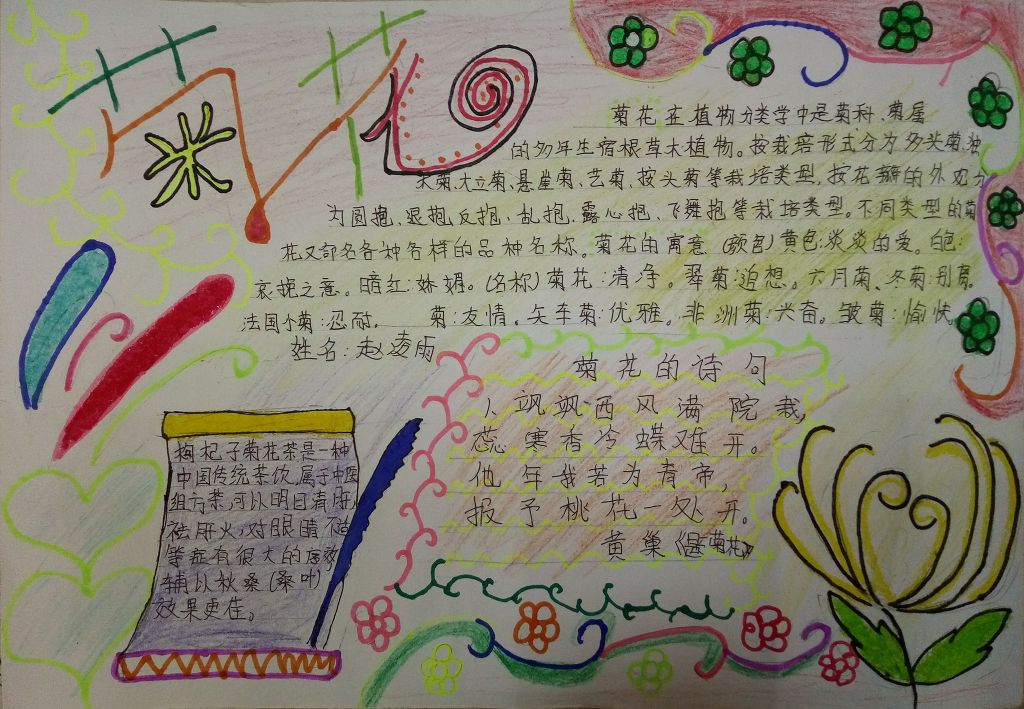 菊花
菊花在植物分类学中是菊科、菊属
的多年生宿根草木植物。按栽培形式分为多头菊、独
本菊、大立菊、悬崖菊、艺菊、按头菊等栽培类型,按花瓣的外观分
为圆抱、退抱、反抱、乱抱、露心抱、飞舞抱等栽培类型。不同类型的菊
花又命名各种各样的品种名称。菊花的寓意。(颜色)黄色:淡淡的爱。白色:
哀挽之意。暗红:妩媚。(名称)菊花:清净。翠菊:追想。六月菊、冬菊:别离。
法国小菊:忍耐. 菊:友情。矢车菊:优雅。非洲菊:兴奋。皱菊:愉快。
姓名:赵凌雨
菊花的诗句
1、飒飒西风满院栽,
蕊寒香冷蝶难开。
他年我若为青帝,
报予桃花一处开。
黄巢《题菊花》
枸杞子菊花茶是一种
中国传统茶饮,属于中医
组方茶,可以明目清肝,
祛肝火,对眼睛不适
等症有很大的疗效
辅以秋桑(桑叶)
效果更佳。